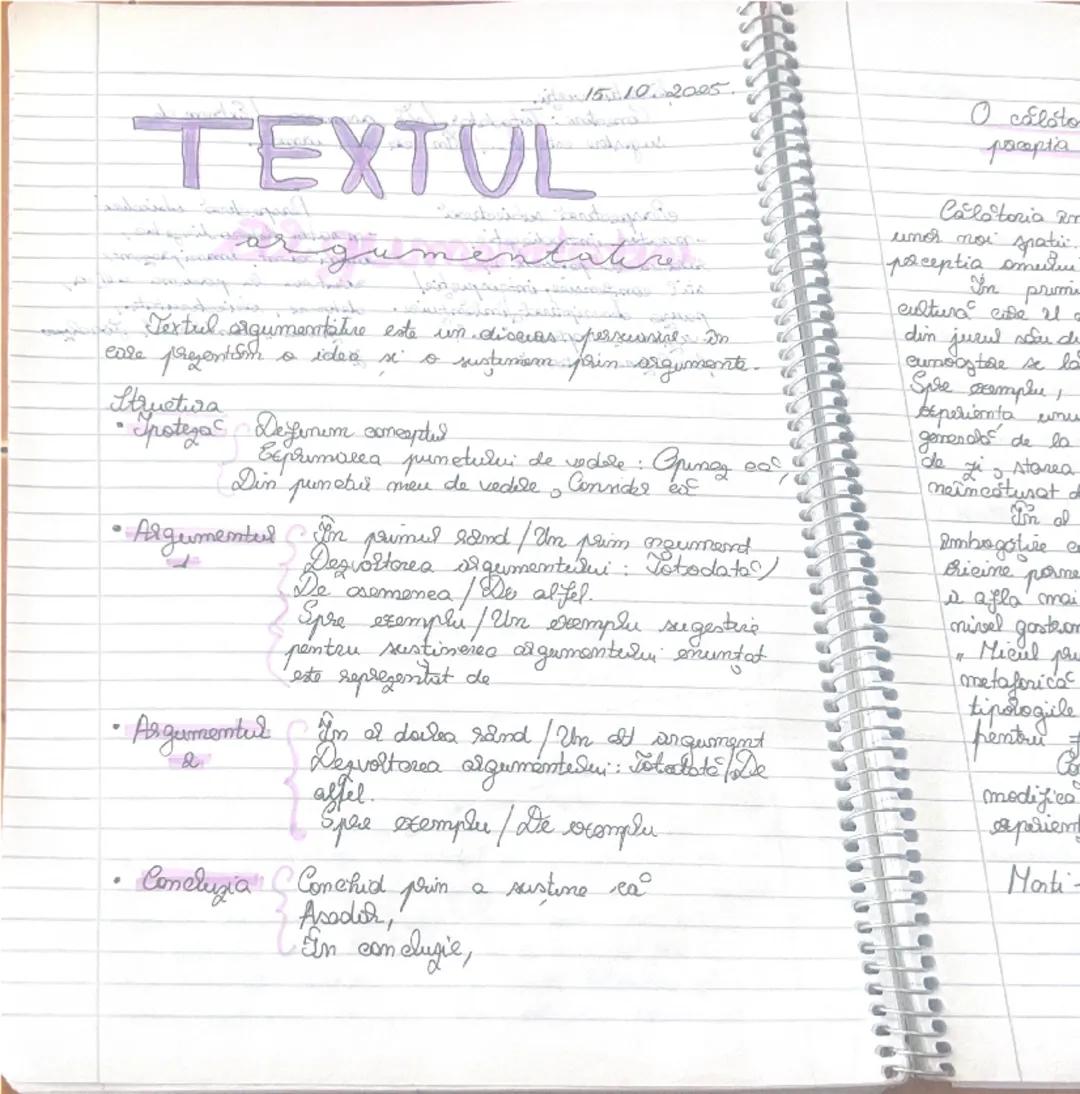 15.10.2025.
TEXTUL
argumentativ
Textul argumentativ este un discurs persuasiv în
care prezentăm o idee și o susținem prin argumente.
Structura
• Ipoteză Definim conceptul
Exprimarea punctului de vedere : Opinez că,
Din punctul meu de vedere, Consider că
• Argumentul În primul rând / Un prim argument
1 Dezvoltarea argumentului : Totodată /
De asemenea / De altfel.
Spre exemplu / Un exemplu sugestiv
pentru susținerea argumentului enunțat
este reprezentat de
• Argumentul În al doilea rând / Un alt argument
2. Dezvoltarea argumentului : Totodată / De
altfel.
Spre exemplu / De exemplu
• Concluzia Conchid prin a susține că
Așadar,
În concluzie,
O călăto
percepția
Călătoria
unor noi spații.
percepția omului
În primu
cultură care îl
din jurul său
cunoaștere se
Spre exemplu,
experiența unu
generală de la
de zi, starea
În al
a afla mai
nivel
„ Micul
metaforică
tipologiile
pentru
modifica
experienț